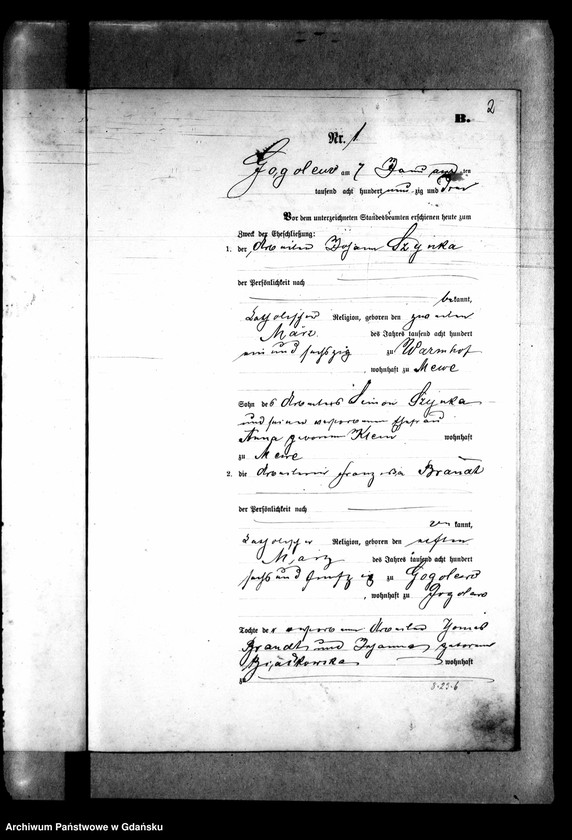 B. 2
Nr. 1
Gogolewo am 7 Januar ten
tausend acht hundert neun zig und drei
Vor dem unterzeichneten Standesbeamten erschienen heute zum
Zweck der Eheschließung:
1. der Arbeiter Johann Szynka
der Persönlichkeit nach
bekannt,
katholischer Religion, geboren den zweiten
März des Jahres tausend acht hundert
ein und sechszig zu Warmhof
, wohnhaft zu Mewe
Sohn des Arbeiters Simon Szynka
und seiner verstorbenen Ehefrau
Anna geborenen Klein wohnhaft
zu Mewe
2. die Arbeiterin Franziska Brandt
der Persönlichkeit nach
kannt,
katholischer Religion, geboren den elften
März des Jahres tausend acht hundert
sechs und fünfzig zu Gogolewo
, wohnhaft zu Gogolewo
Tochter der verstorbenen Arbeiter
Brandt und Johanna geborenen
wohnhaft
zu
8-23-6
Archiwum Państwowe w Gdańsku